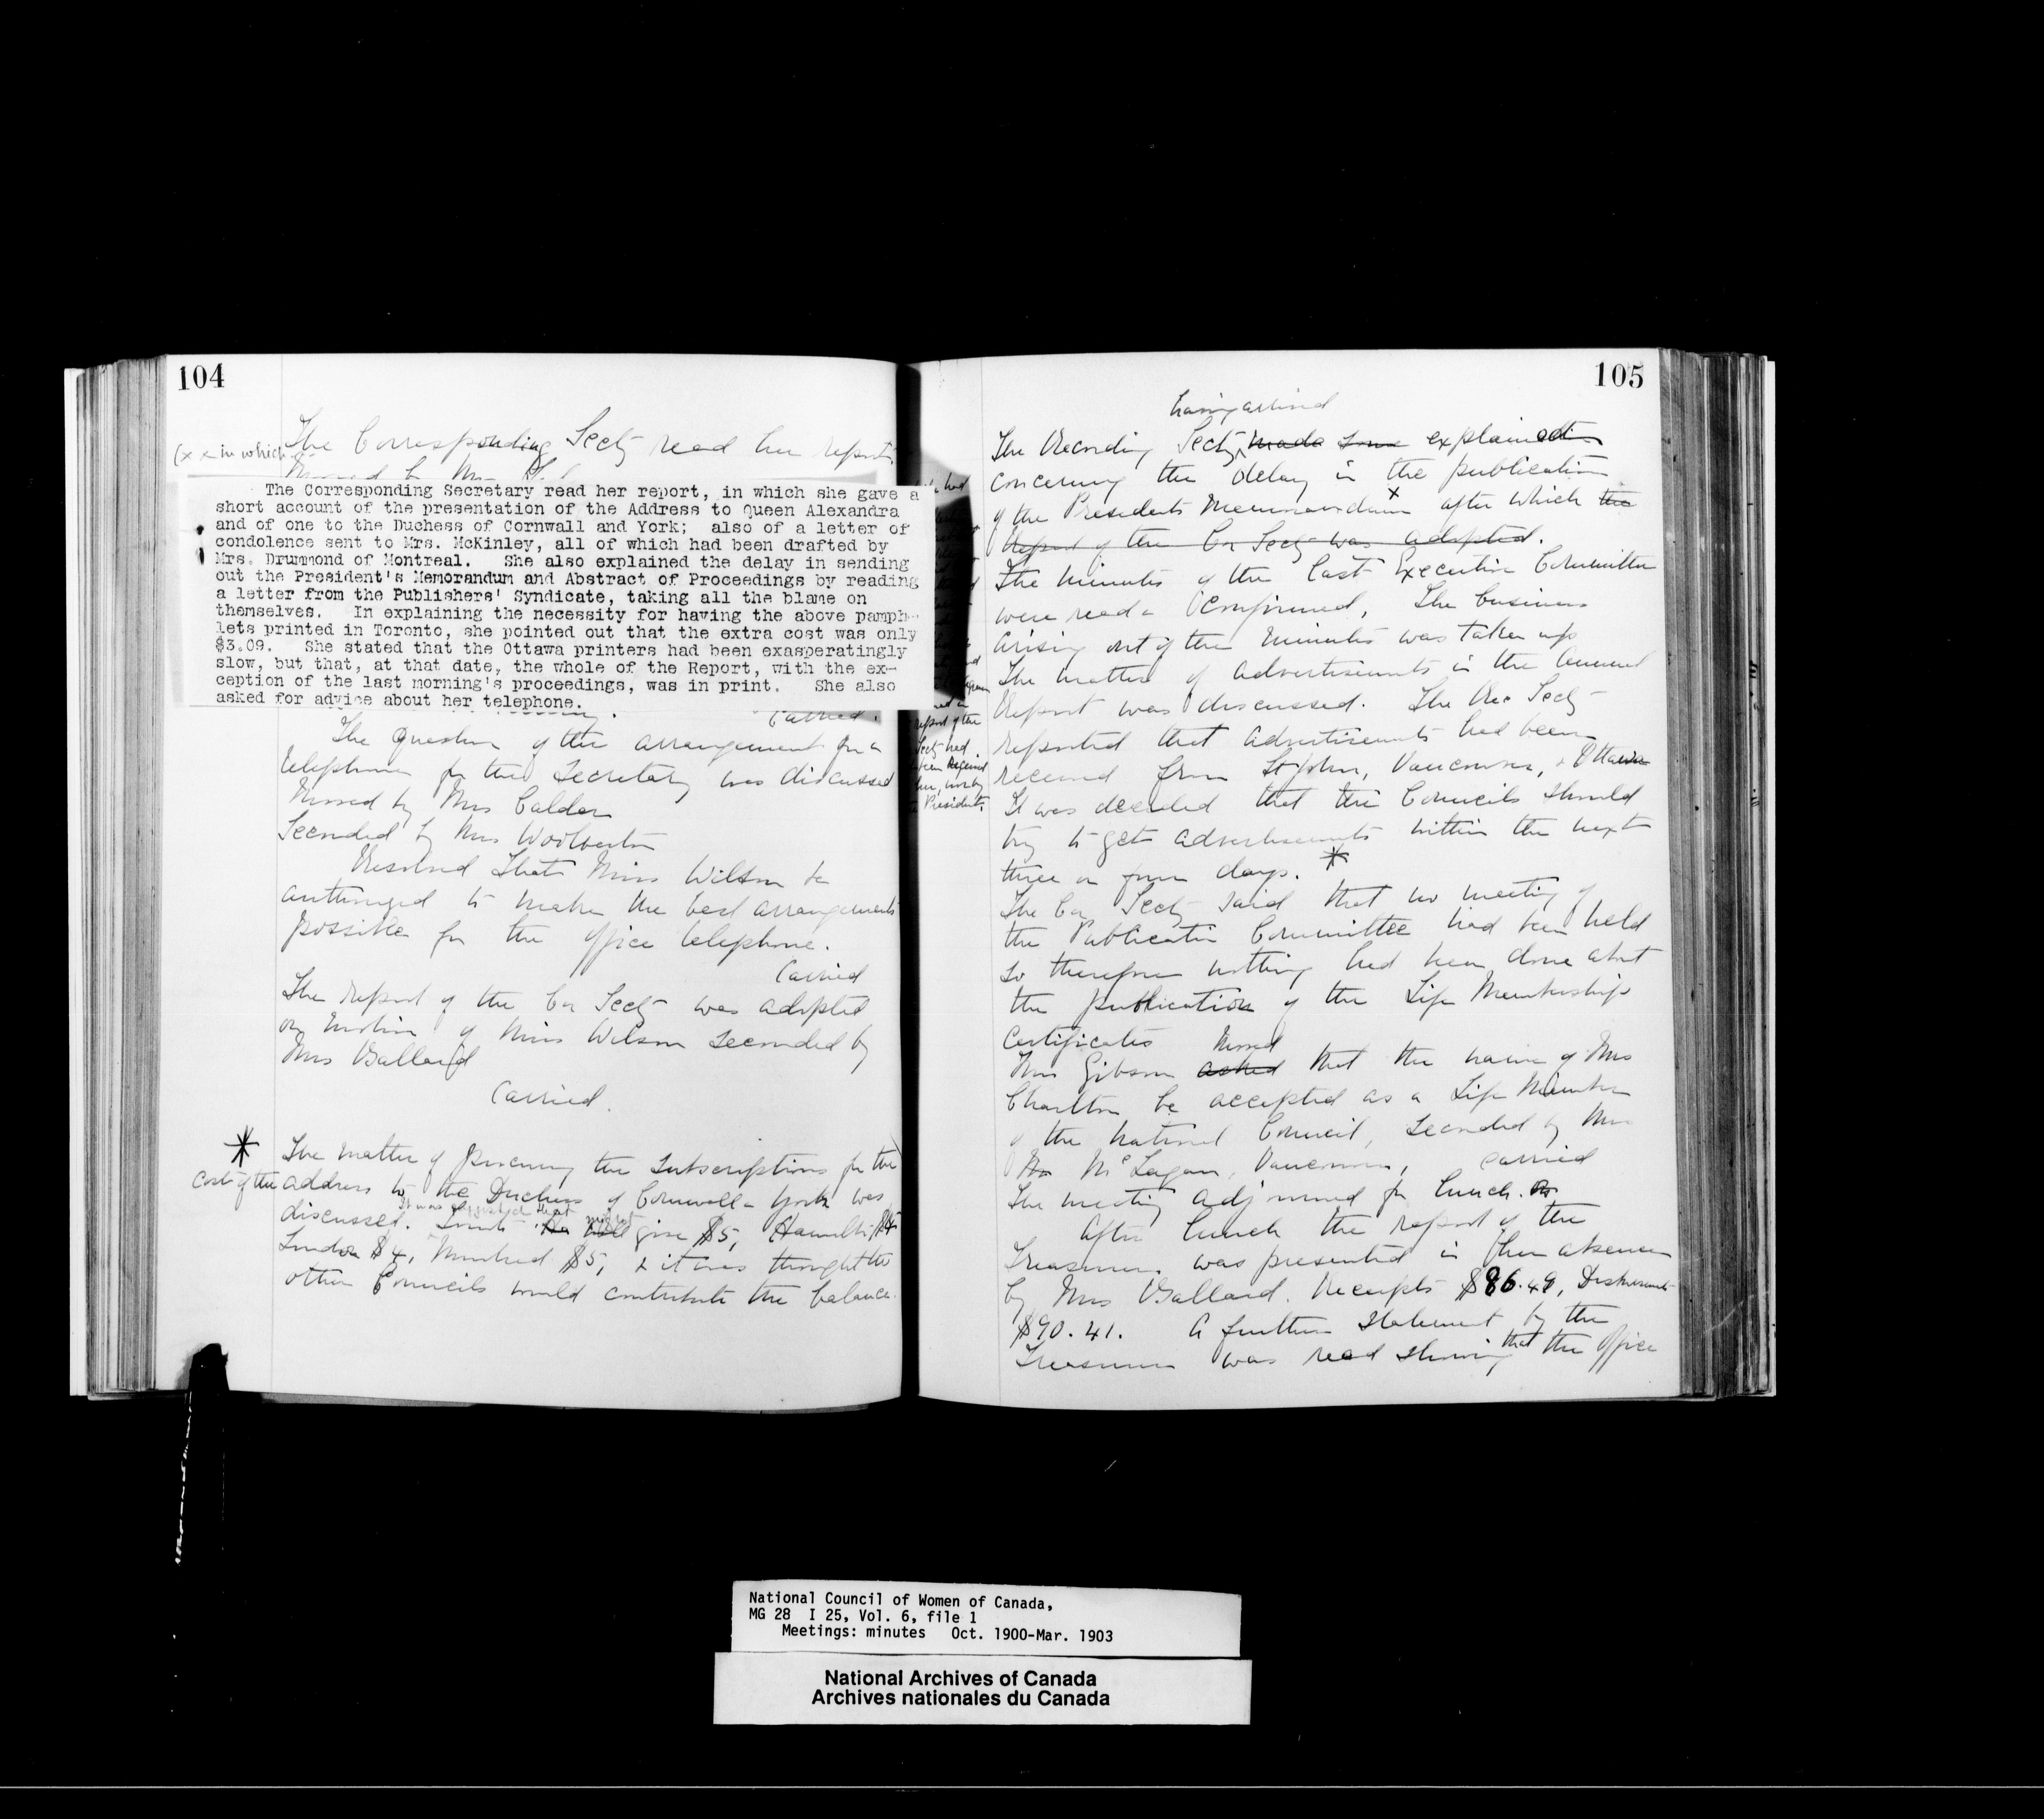 104
The Corresponding Secty read her report.
(x x in which
Moved by Mrs
The Corresponding Secretary read her report, in which she gave a
short account of the presentation of the Address to Queen Alexandra
and of one to the Duchess of Cornwall and York; also of a letter of
condolence sent to Mrs. McKinley, all of which had been drafted by
Mrs. Drummond of Montreal. She also explained the delay in sending
out the President's Memorandum and Abstract of Proceedings by reading
a letter from the Publishers' Syndicate, taking all the blame on
themselves. In explaining the necessity for having the above pamph-
lets printed in Toronto, she pointed out that the extra cost was only
$3.09. She stated that the Ottawa printers had been exasperatingly
slow, but that, at that date, the whole of the Report, with the ex-
ception of the last morning's proceedings, was in print. She also
asked for advice about her telephone.
Carried.
The question of the arrangement for a
telephone for the Secretary was discussed
Moved by Mrs Calder
Seconded by Mrs Woolverton
Resolved That Miss Wilson be
authorized to make the best arrangements
possible for the office telephone.
Carried
The report of the Cor Secty was adopted
on motion of Miss Wilson seconded by
Mrs Ballard
Carried.
* The matter of procuring the subscriptions for the
cost of the address to the Duchess of Cornwall & York was
It was that might
discussed. give $5, Hamilton $5
London $4, Montreal $5, & it was thought the
other Councils would contribute the balance.
105
having arrived
The Recording Secty made some explanation
concerning the delay in the publication
of the Presidents Memorandum x after which the
Report of the Cor Secty was adopted.
The minutes of the last Executive Committee
were read & confirmed, The business
arising out of the minutes was taken up
The matter of advertisements in the Annual
Report was discussed. The Rec Secty
reported that advertisements had been
received from St John, Vancouver, & Ottawa
It was decided that the Councils should
try to get advertisements within the next
three or four days. *
The Cor Secty said that no meeting of
the Publication Committee had been held
so therefore nothing had been done about
the publication of the Life Membership
Certificates
Moved
Mrs Gibson asked that the name of Mrs
Charlton be accepted as a Life Member
of the National Council, seconded by Mrs
McLagan, Vancouver, carried
The meeting adjourned for lunch.
After lunch the report of the
Treasurer was presented in her absence
by Mrs Ballard. Receipts $86.49, Disbursements
$90.41. A further statement by the
Treasurer was read showing that the office
had
report of the
Secty had
been
President.
National Council of Women of Canada,
MG 28 I 25, Vol. 6, file 1
Meetings: minutes Oct. 1900-Mar. 1903
National Archives of Canada
Archives nationales du Canada